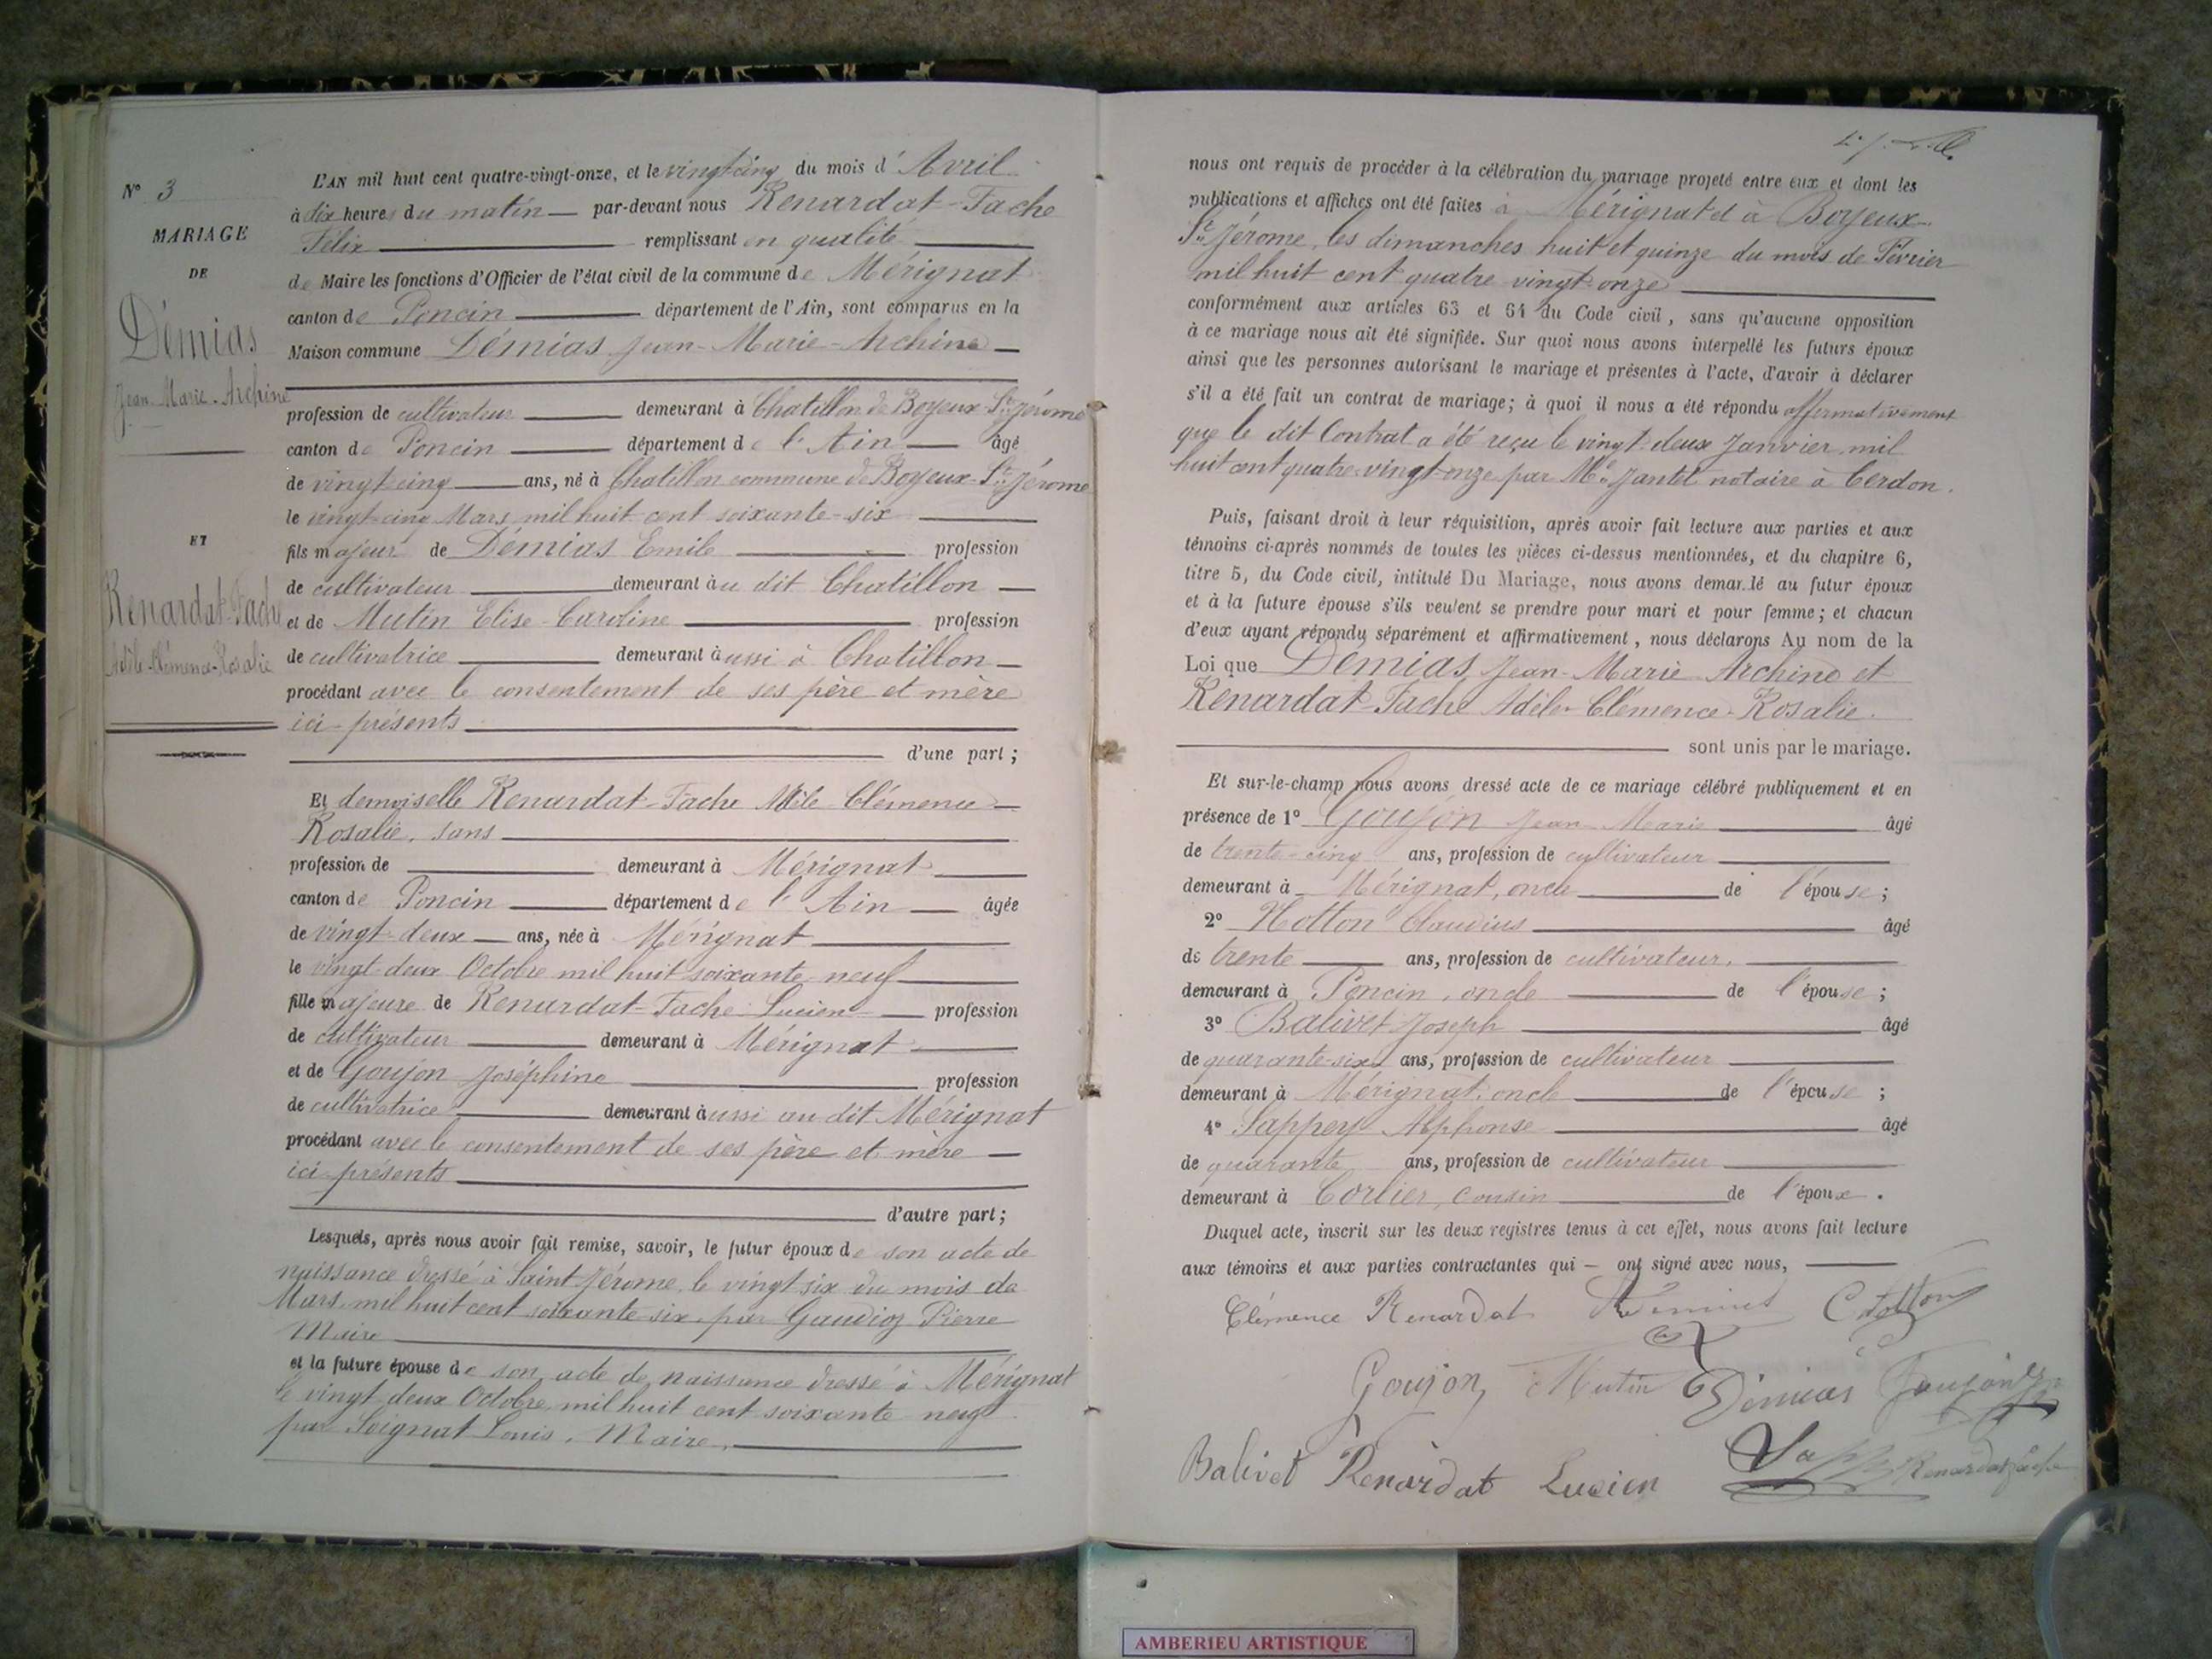 N° 3
MARIAGE
DE
Démias
Jean-Marie-Archine
ET
Renardat-Fache
Adèle-Clémence-Rosalie
L'AN mil huit cent quatre-vingt-onze, et le vingt cinq du mois d'Avril
à dix heures du matin — par-devant nous Renardat-Fache
Félix remplissant en qualité
de Maire les fonctions d'Officier de l'état civil de la commune de Mérignat
canton de Poncin département de l'Ain, sont comparus en la
Maison commune Démias Jean-Marie-Archine
profession de cultivateur demeurant à Chatillon de Boyeux-St Jérome
canton de Poncin département de l'Ain âgé
de vingt-cinq ans, né à Chatillon commune de Boyeux-St Jérome
le vingt-cinq Mars mil huit cent soixante-six
fils majeur de Démias Emile profession
de cultivateur demeurant au dit Chatillon
et de Mutin Elise-Caroline profession
de cultivatrice demeurant aussi à Chatillon
procédant avec le consentement de ses père et mère
ici-présents
d'une part ;
Et demoiselle Renardat-Fache Adèle Clémence
Rosalie, sans
profession de demeurant à Mérignat
canton de Poncin département de l'Ain âgée
de vingt-deux ans, née à Mérignat
le vingt-deux Octobre mil huit soixante-neuf
fille majeure de Renardat-Fache Lucien profession
de cultivateur demeurant à Mérignat
et de Goujon Joséphine profession
de cultivatrice demeurant aussi au dit Mérignat
procédant avec le consentement de ses père et mère
ici-présents
d'autre part ;
Lesquels, après nous avoir fait remise, savoir, le futur époux de son acte de
naissance dressé à Saint-Jérome le vingt six du mois de
Mars mil huit cent soixante-six par Gaudioz Pierre
Maire
et la future épouse de son acte de naissance dressé à Mérignat
le vingt deux Octobre mil huit cent soixante-neuf
par Soignat Louis, Maire,
nous ont requis de procéder à la célébration du mariage projeté entre eux et dont les
publications et affiches ont été faites à Mérignat et à Boyeux
St Jérome, les dimanches huit et quinze du mois de Février
mil huit cent quatre vingt-onze
conformément aux articles 63 et 64 du Code civil, sans qu'aucune opposition
à ce mariage nous ait été signifiée. Sur quoi nous avons interpellé les futurs époux
ainsi que les personnes autorisant le mariage et présentes à l'acte, d'avoir à déclarer
s'il a été fait un contrat de mariage ; à quoi il nous a été répondu affirmativement
que le dit Contrat a été reçu le vingt-deux Janvier mil
huit cent quatre-vingt-onze par Me Jantet notaire à Cerdon.
Puis, faisant droit à leur réquisition, après avoir fait lecture aux parties et aux
témoins ci-après nommés de toutes les pièces ci-dessus mentionnées, et du chapitre 6,
titre 5, du Code civil, intitulé Du Mariage, nous avons demandé au futur époux
et à la future épouse s'ils veulent se prendre pour mari et pour femme ; et chacun
d'eux ayant répondu séparément et affirmativement, nous déclarons Au nom de la
Loi que Démias, Jean-Marie Archine et
Renardat-Fache Adèle-Clémence-Rosalie.
sont unis par le mariage.
Et sur-le-champ nous avons dressé acte de ce mariage célébré publiquement et en
présence de 1° Goujon Jean Marie âgé
de trente-cinq ans, profession de cultivateur
demeurant à Mérignat, oncle de l'épouse ;
2° Hotton Claudius âgé
de trente ans, profession de cultivateur.
demeurant à Poncin, oncle de l'épouse ;
3° Balivet Joseph âgé
de quarante-six ans, profession de cultivateur
demeurant à Mérignat, oncle de l'épouse ;
4° Sappey Alphonse âgé
de quarante ans, profession de cultivateur
demeurant à Corlier, Cousin de l'époux.
Duquel acte, inscrit sur les deux registres tenus à cet effet, nous avons fait lecture
aux témoins et aux parties contractantes qui — ont signé avec nous,
Clémence Renardat Démias C Hotton
Goujon Mutin Démias Goujon
Balivet Renardat Lucien Renardat Fache
AMBERIEU ARTISTIQUE